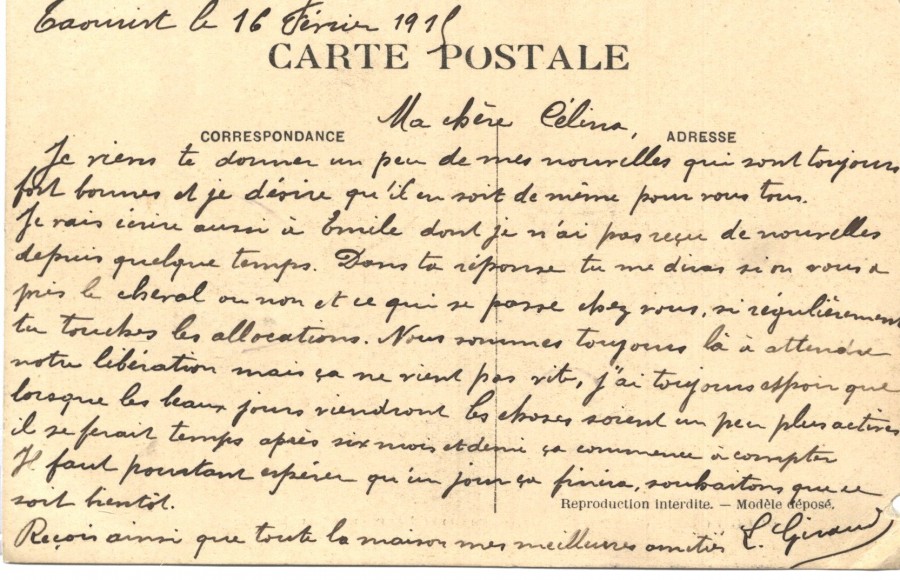 Taourirt le 16 Février 1915
CARTE POSTALE
Ma chère Célina,
CORRESPONDANCE
ADRESSE
Je viens te donner un peu de mes nouvelles qui sont toujours
fort bonnes et je désire qu'il en soit de même pour vous tous.
Je vais écrire aussi à Emile dont je n'ai pas reçu de nouvelles
depuis quelque temps. Dans ta réponse tu me diras si on vous a
pris le cheval ou non et ce qui se passe chez vous, si régulièrement
tu touches les allocations. Nous sommes toujours là à attendre
notre libération mais ça ne vient pas vite, j'ai toujours espoir que
lorsque les beaux jours viendront les choses soient un peu plus actives
il se ferait temps après six mois et demi ça commence à compter
Il faut pourtant espérer qu'un jour ça finira, souhaitons que ce
soit bientôt.
Reproduction interdite. — Modèle déposé.
Reçois ainsi que toute la maison mes meilleures amitiés L. Giraud